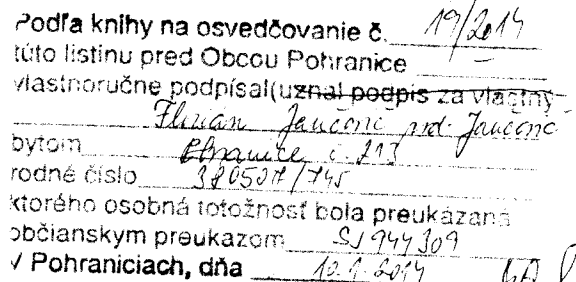 Podľa knihy na osvedčovanie č. 19/2014
túto listinu pred Obcou Pohranice
vlastnoručne podpísal(uznal podpis za vlastný
Florián Jančovič rod. Jančovič
bytom Pohranice č. 213
rodné číslo 380507/745
ktorého osobná totožnosť bola preukázaná
občianskym preukazom SJ 944309
V Pohraniciach, dňa 10.1.2014